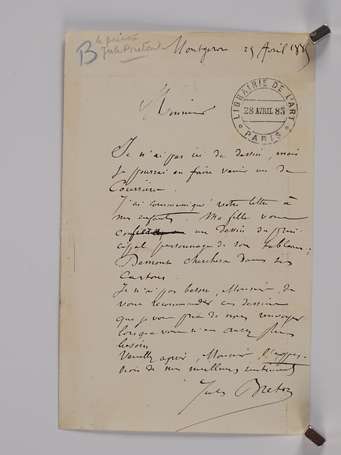 B le peintre
Jules Breton
Montgeron 25 Avril 1885
LIBRAIRIE DE L'ART
28 AVRIL 85
PARIS
Monsieur
Je n'ai pas ici de dessin, mais
je pourrai en faire venir un de
Courrières.
J'ai communiqué votre lettre à
mes enfants. Ma fille vous
un dessin du prin-
cipal personnage de son tableau;
Demont cherchera dans ses
cartons.
Je n'ai pas besoin, Monsieur, de
vous recommander ces dessins
que je vous prie de nous renvoyer
lorsque vous n'en aurez plus
besoin.
Veuillez agréer, Monsieur, l'expres-
sion de mes meilleurs sentiments
Jules Breton